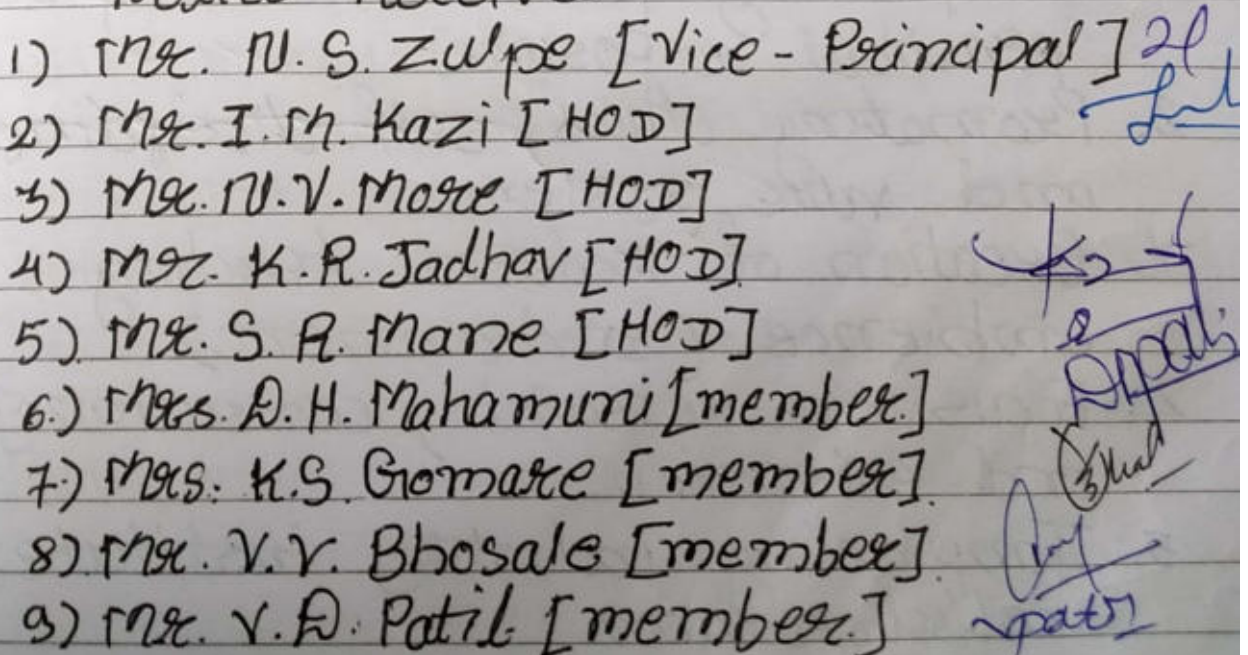 1) Mr. N. S. Zulpe [Vice - Principal]
2) Mr. I. M. Kazi [HOD]
3) Mr. N. V. More [HOD]
4) Mr. K. R. Jadhav [HOD]
5) Mr. S. R. Mane [HOD]
6.) Mrs. D. H. Mahamuni [member.]
7.) Mrs. K.S. Gomare [member].
8) Mr. V. V. Bhosale [member].
9) Mr. V. D. Patil [member.]